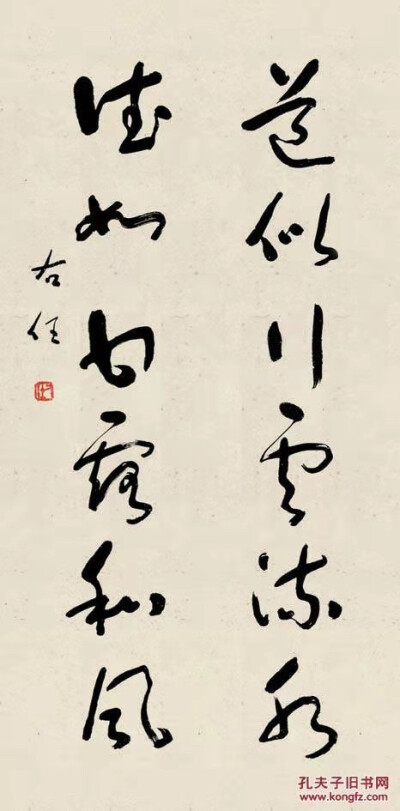 道似行雲流水
德如甘露和風
右任
孔夫子旧书网
www.kongfz.com